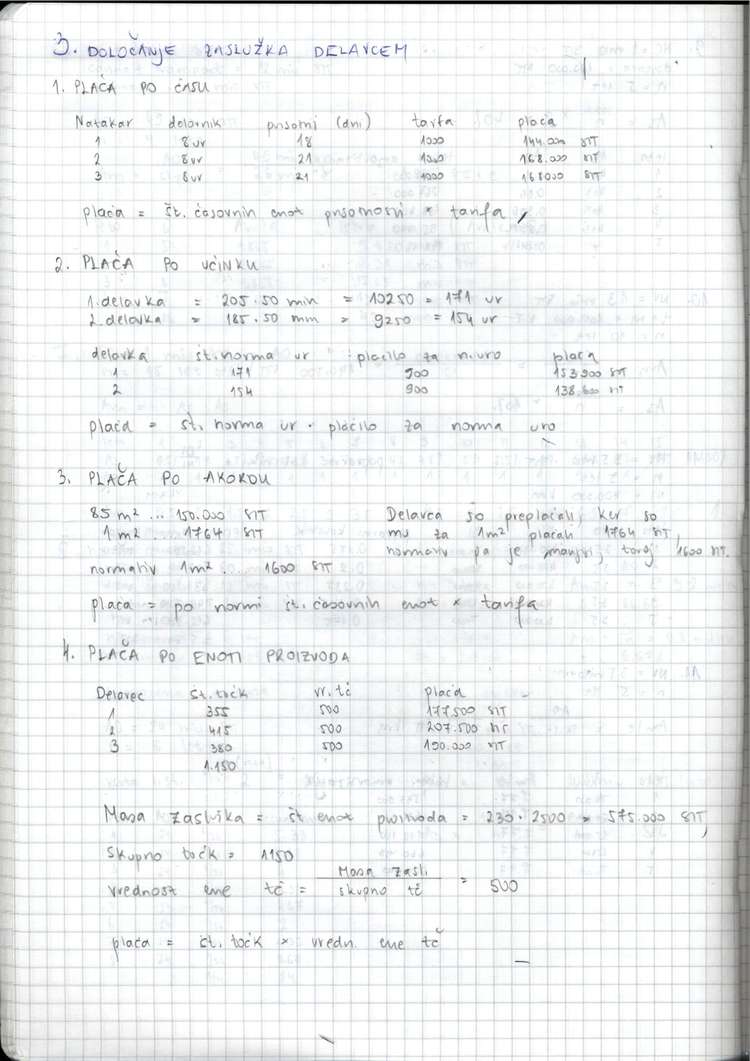 3. DOLOČANJE ZASLUŽKA DELAVCEM
1. PLAČA PO ČASU
Natakar delovnik prisotni (dni) tarifa plača
1 8 ur 18 1000 144.000 SIT
2 8 ur 21 1000 168.000 SIT
3 8 ur 21 1000 168000 SIT
plača = št. časovnih enot prisotnosti × tarifa
2. PLAČA PO UČINKU
1. delavka = 205 · 50 min = 10250 = 171 ur
2. delavka = 185 · 50 min = 9250 = 154 ur
delavka št. norma ur plačilo za n. uro plača
1 171 900 153 900 SIT
2 154 900 138.600 SIT
plača = št. norma ur · plačilo za norma uro
3. PLAČA PO AKORDU
85 m² ... 150.000 SIT Delavca so preplačali, ker so
1 m² 1764 SIT mu za 1m² plačali 1764 SIT,
normativ pa je manjši, torej 1600 SIT.
normativ 1m² ... 1600 SIT
plača = po normi št. časovnih enot × tarifa
4. PLAČA PO ENOTI PROIZVODA
Delavec št. točk vr. tč plača
1 355 500 177.500 SIT
2 415 500 207.500 SIT
3 380 500 190.000 SIT
1.150
Masa zaslužka = št enot proizvoda = 230 · 2500 = 575.000 SIT
Skupno točk = 1150
vrednost ene tč = Masa zasl. / skupno tč = 500
plača = št. točk × vredn. ene tč